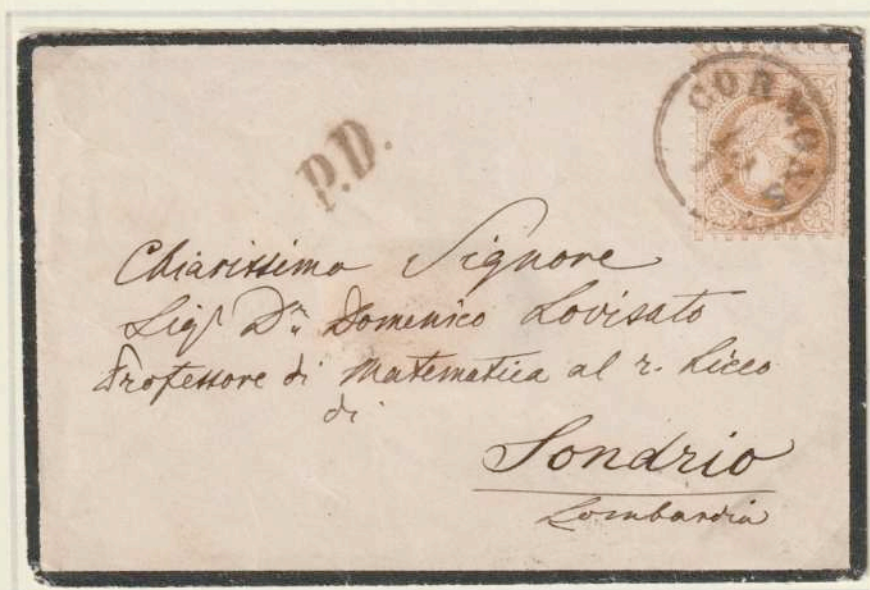 CORMONS
P.D.
Chiarissimo Signore
Sigr Dr. Domenico Lovisato
Professore di Matematica al r. Liceo
di
Sondrio
Lombardia